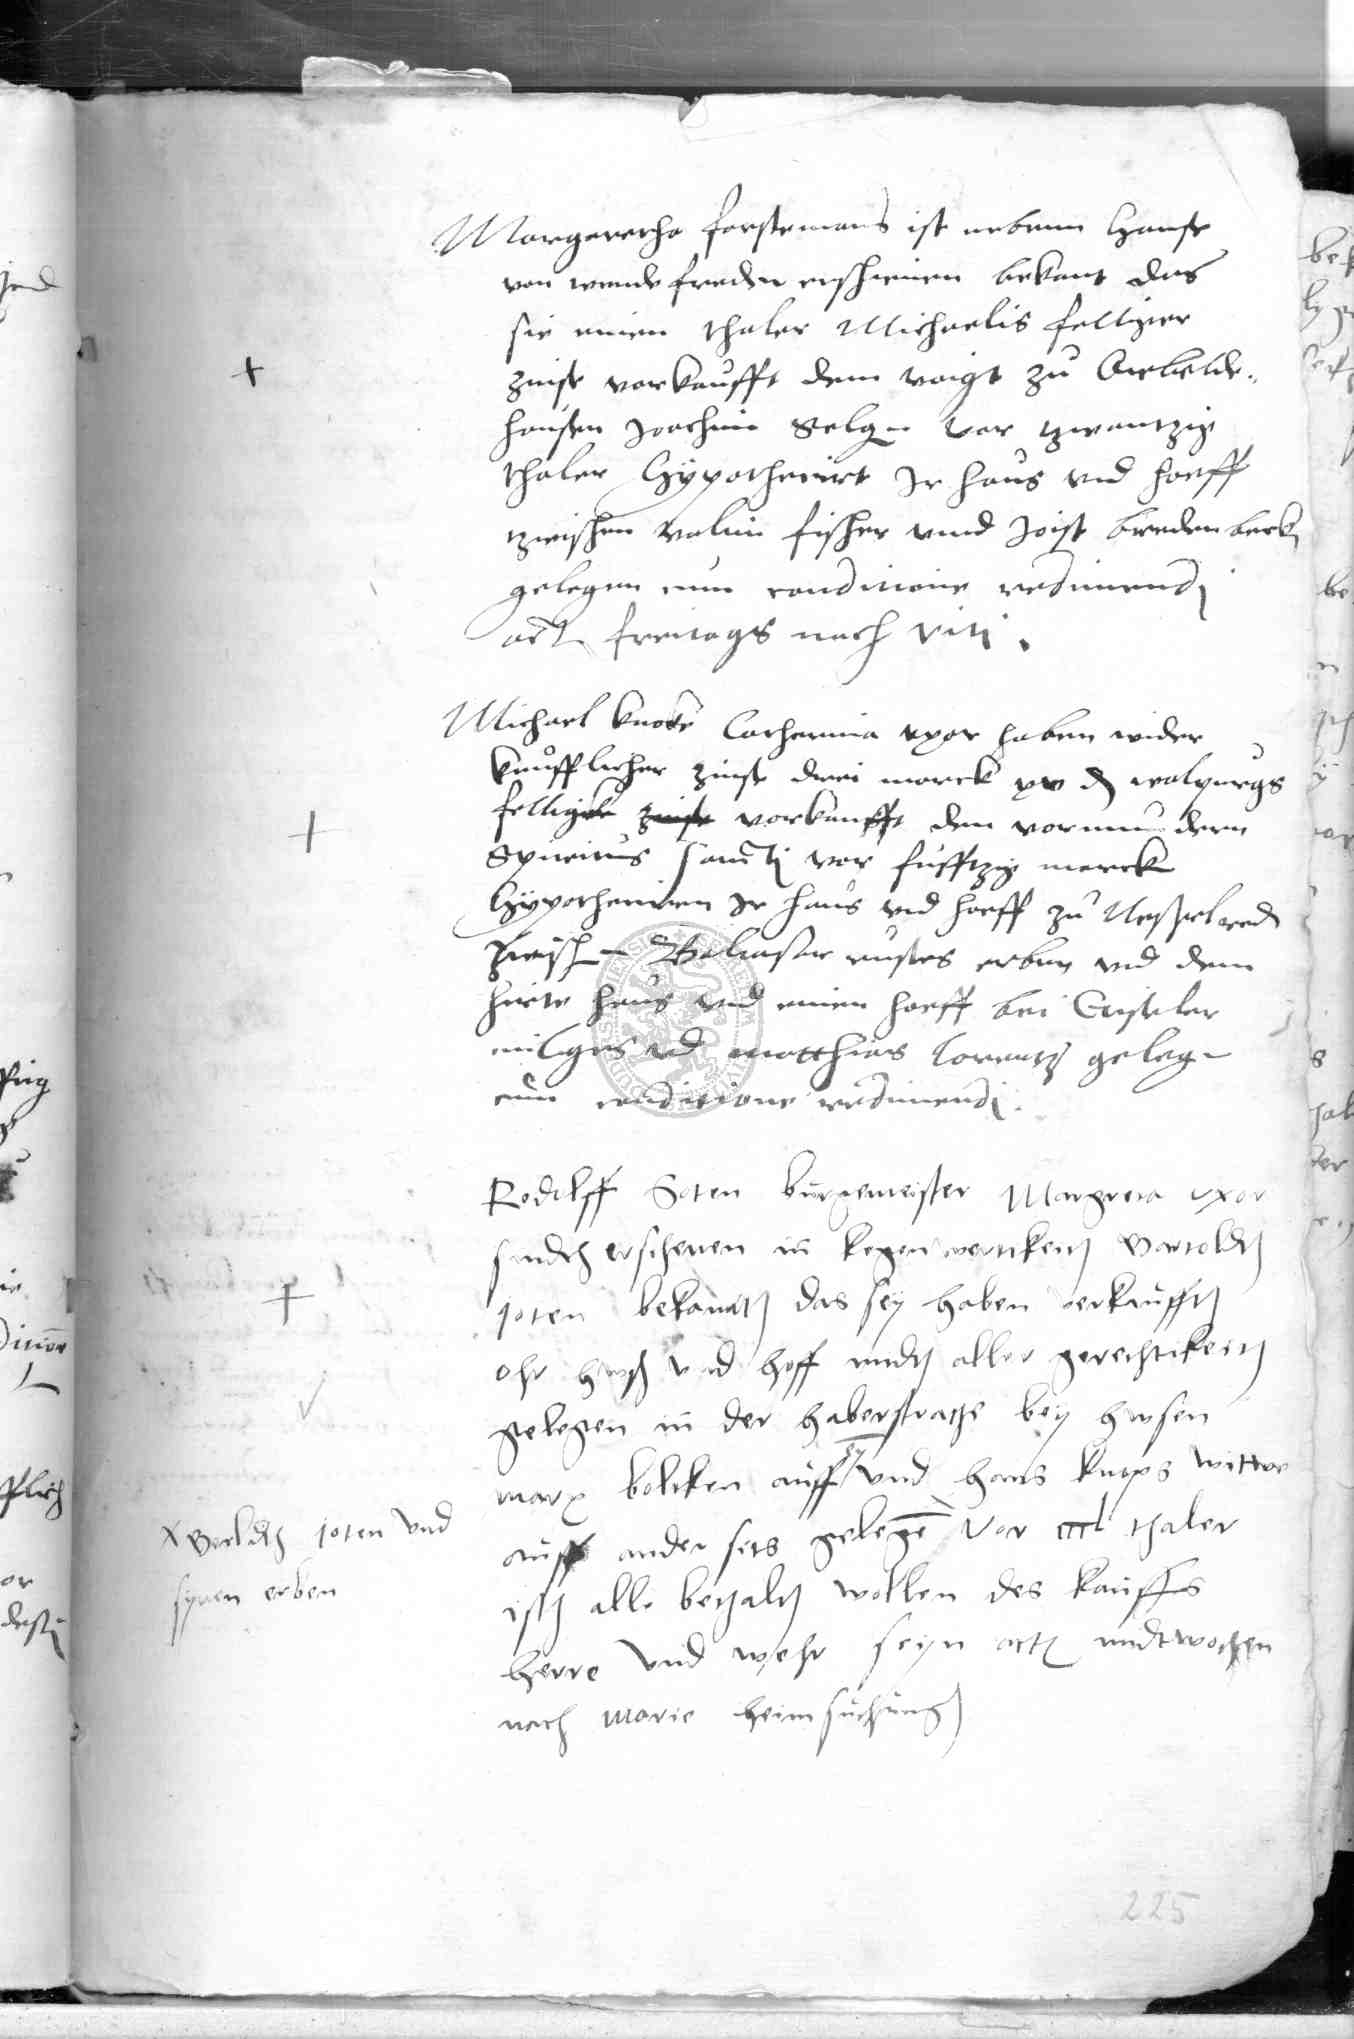 Margaretha forstemans ist nebenn Hansse
von wende freden erschienen bekant das
sie einen thaler Michaelis felliger
zinse vorkaufft dem voigt zu Gebelde-
hausen Joachim Selgen vor tzwantzig
thaler Hypothecirt Ir haus vnd hoeff
tzwischen valtin fischer vnnd Joist bredenbeck
gelegen cum conditione redimendi
act freitags nach viti.
Michael knoke Catherina vxor haben wider
keufflicher zinse drei marck xv d walpurgs
fellig zinse vorkaufft den vormundern
Spiritus sancti vor fufftzig marck
Hypotheciren Ir haus vnd hoeff zu Nesselred
zwischen Baltasar erben vnd dem
hirte haus vnd einen hoeff bei Giseler
vnd Matthias Lorentz gelegen
cum conditione redimendi.
Rodolff Soten burgemeister Margreta vxor
sindt erschenen in kegenwerticketh Bartoldt
joten bekandt das sey haben verkaufft
ohr huss vnd hoff midt aller gerechtikeit
gelegen in der haberstrathe bey husen
marx boltken auff ey vnd hans kurps wittwe
auff ander sets gelegen vor cccl thaler
ist alle betzalt wollen des kauffs
herre vnd wehr seyn act midtwochen
nach Marie heimsuchung
x Bertoldt joten vnd
synen erben
225